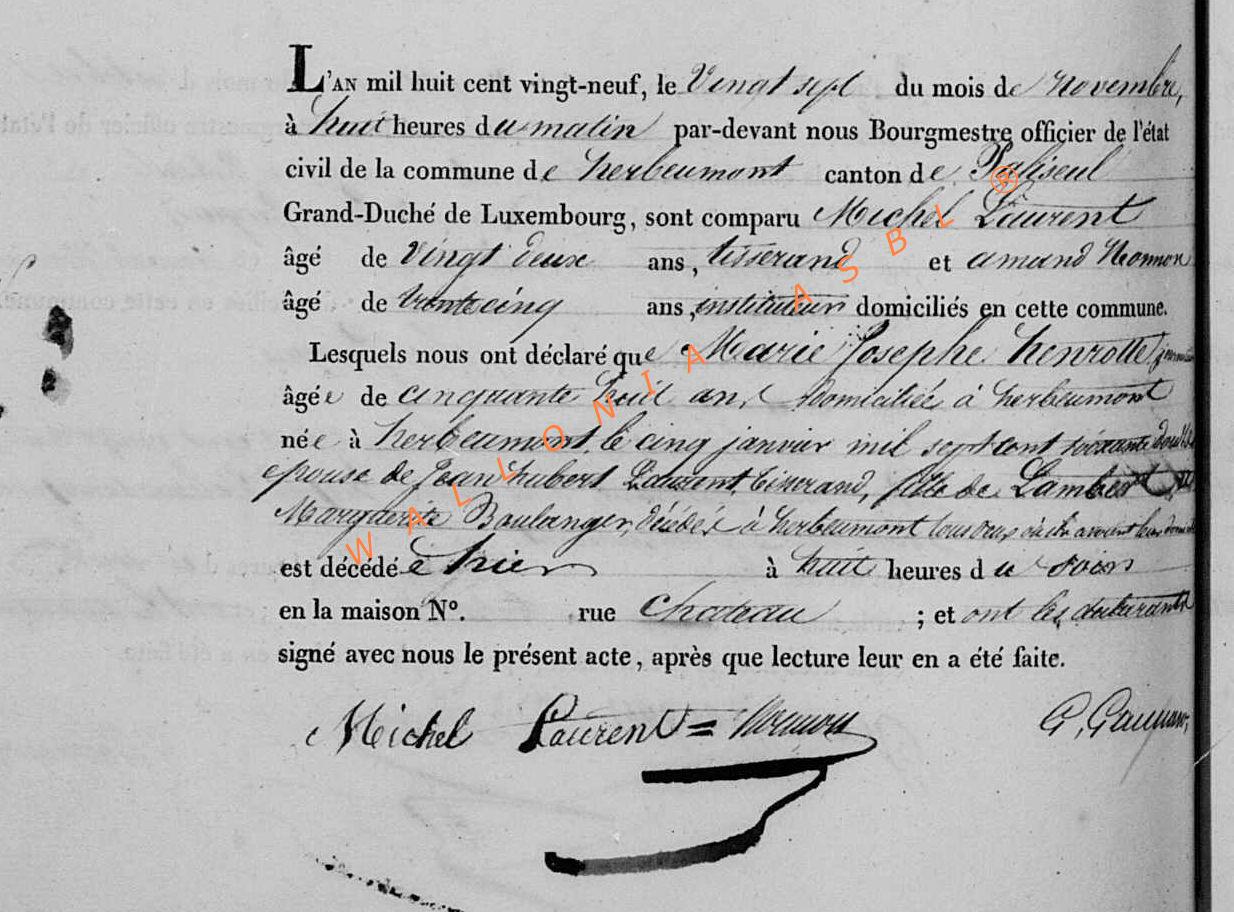 L'AN mil huit cent vingt-neuf, le Vingt sept du mois de Novembre,
à huit heures du matin par-devant nous Bourgmestre officier de l'état
civil de la commune de herbeumont canton de Paliseul
Grand-Duché de Luxembourg, sont comparu Michel Laurent
âgé de Vingt deux ans, tisserand et amand
âgé de trente cinq ans, instituteur domiciliés en cette commune.
Lesquels nous ont déclaré que Marie Josephe henrotte
âgée de cinquante huit ans domiciliée à herbeumont
née à herbeumont le cinq janvier mil sept cent soixante douze
epouse de Jean hubert Laurent, tisserand, fille de Lambert
Marguerite Boulanger, décédés à herbeumont tous deux
est décédée hier à huit heures du soir
en la maison N°. , rue Chateau ; et ont les déclarants
signé avec nous le présent acte, après que lecture leur en a été faite.
Michel Laurent =
WALLONIA ASBL ®